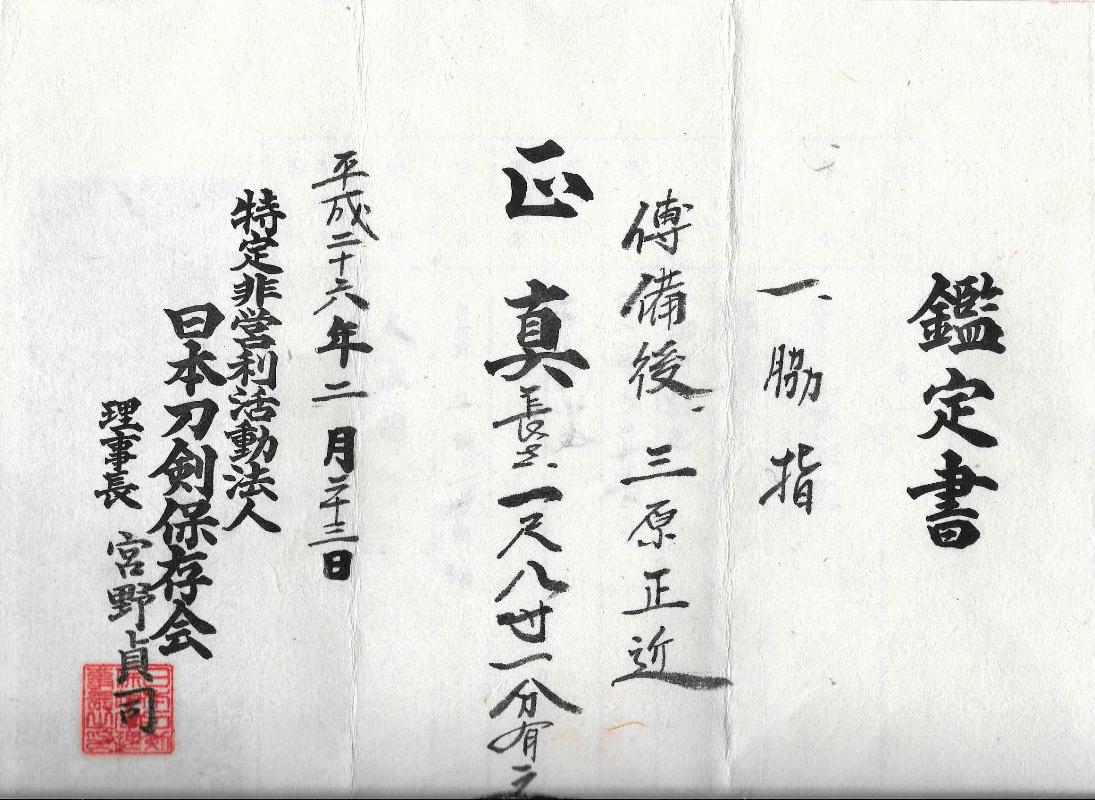 鑑定書
一、脇指
傳備後 三原正近
正真 長さ、一尺八寸一分有之
平成二十六年二月二十三日
特定非営利活動法人
日本刀剣保存会
理事長 宮野貞司